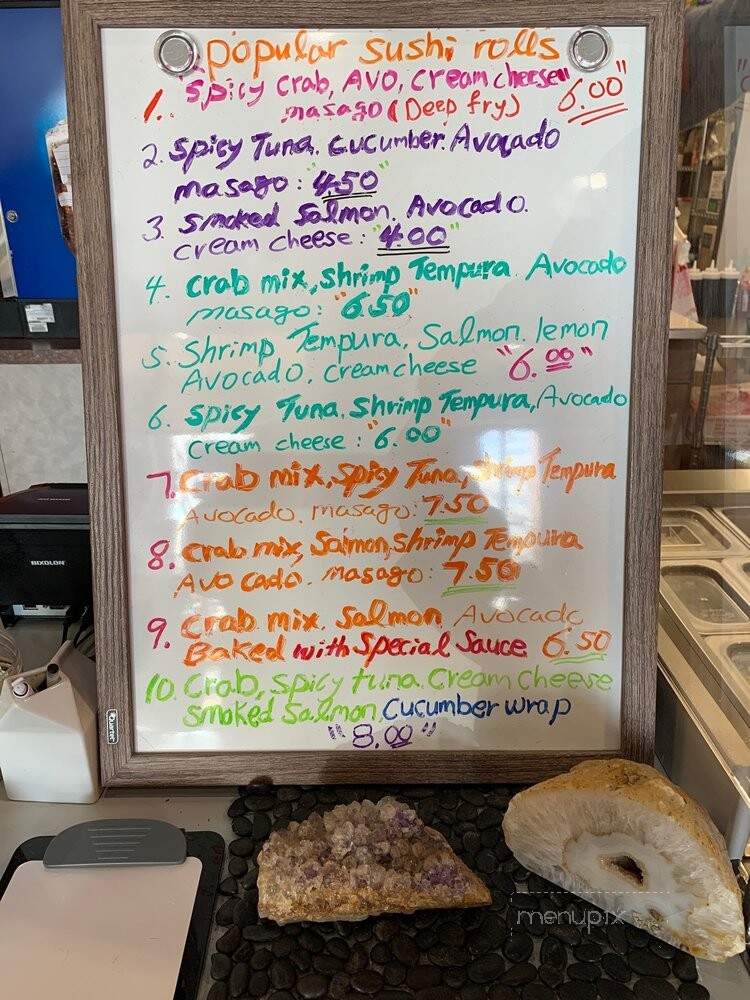 popular sushi rolls
1. Spicy crab, AVO, cream cheese
masago (Deep fry) "6.00"
2. Spicy Tuna. Cucumber. Avocado
masago: "4.50"
3. Smoked Salmon. Avocado.
cream cheese: "4.00"
4. Crab mix, Shrimp Tempura. Avocado
masago: "6.50"
5. Shrimp Tempura, Salmon. lemon
Avocado. cream cheese "6.00"
6. Spicy Tuna. Shrimp Tempura, Avocado
cream cheese: "6.00"
7. Crab mix, Spicy Tuna, Shrimp Tempura
Avocado. masago: 7.50
8. Crab mix, Salmon, Shrimp Tempura
Avocado. masago: 7.50
9. Crab mix. Salmon. Avocado
Baked with Special Sauce 6.50
10. Crab, Spicy tuna. Cream cheese
Smoked Salmon. Cucumber wrap
"8.00"
BIXOLON
Quartet
menupix